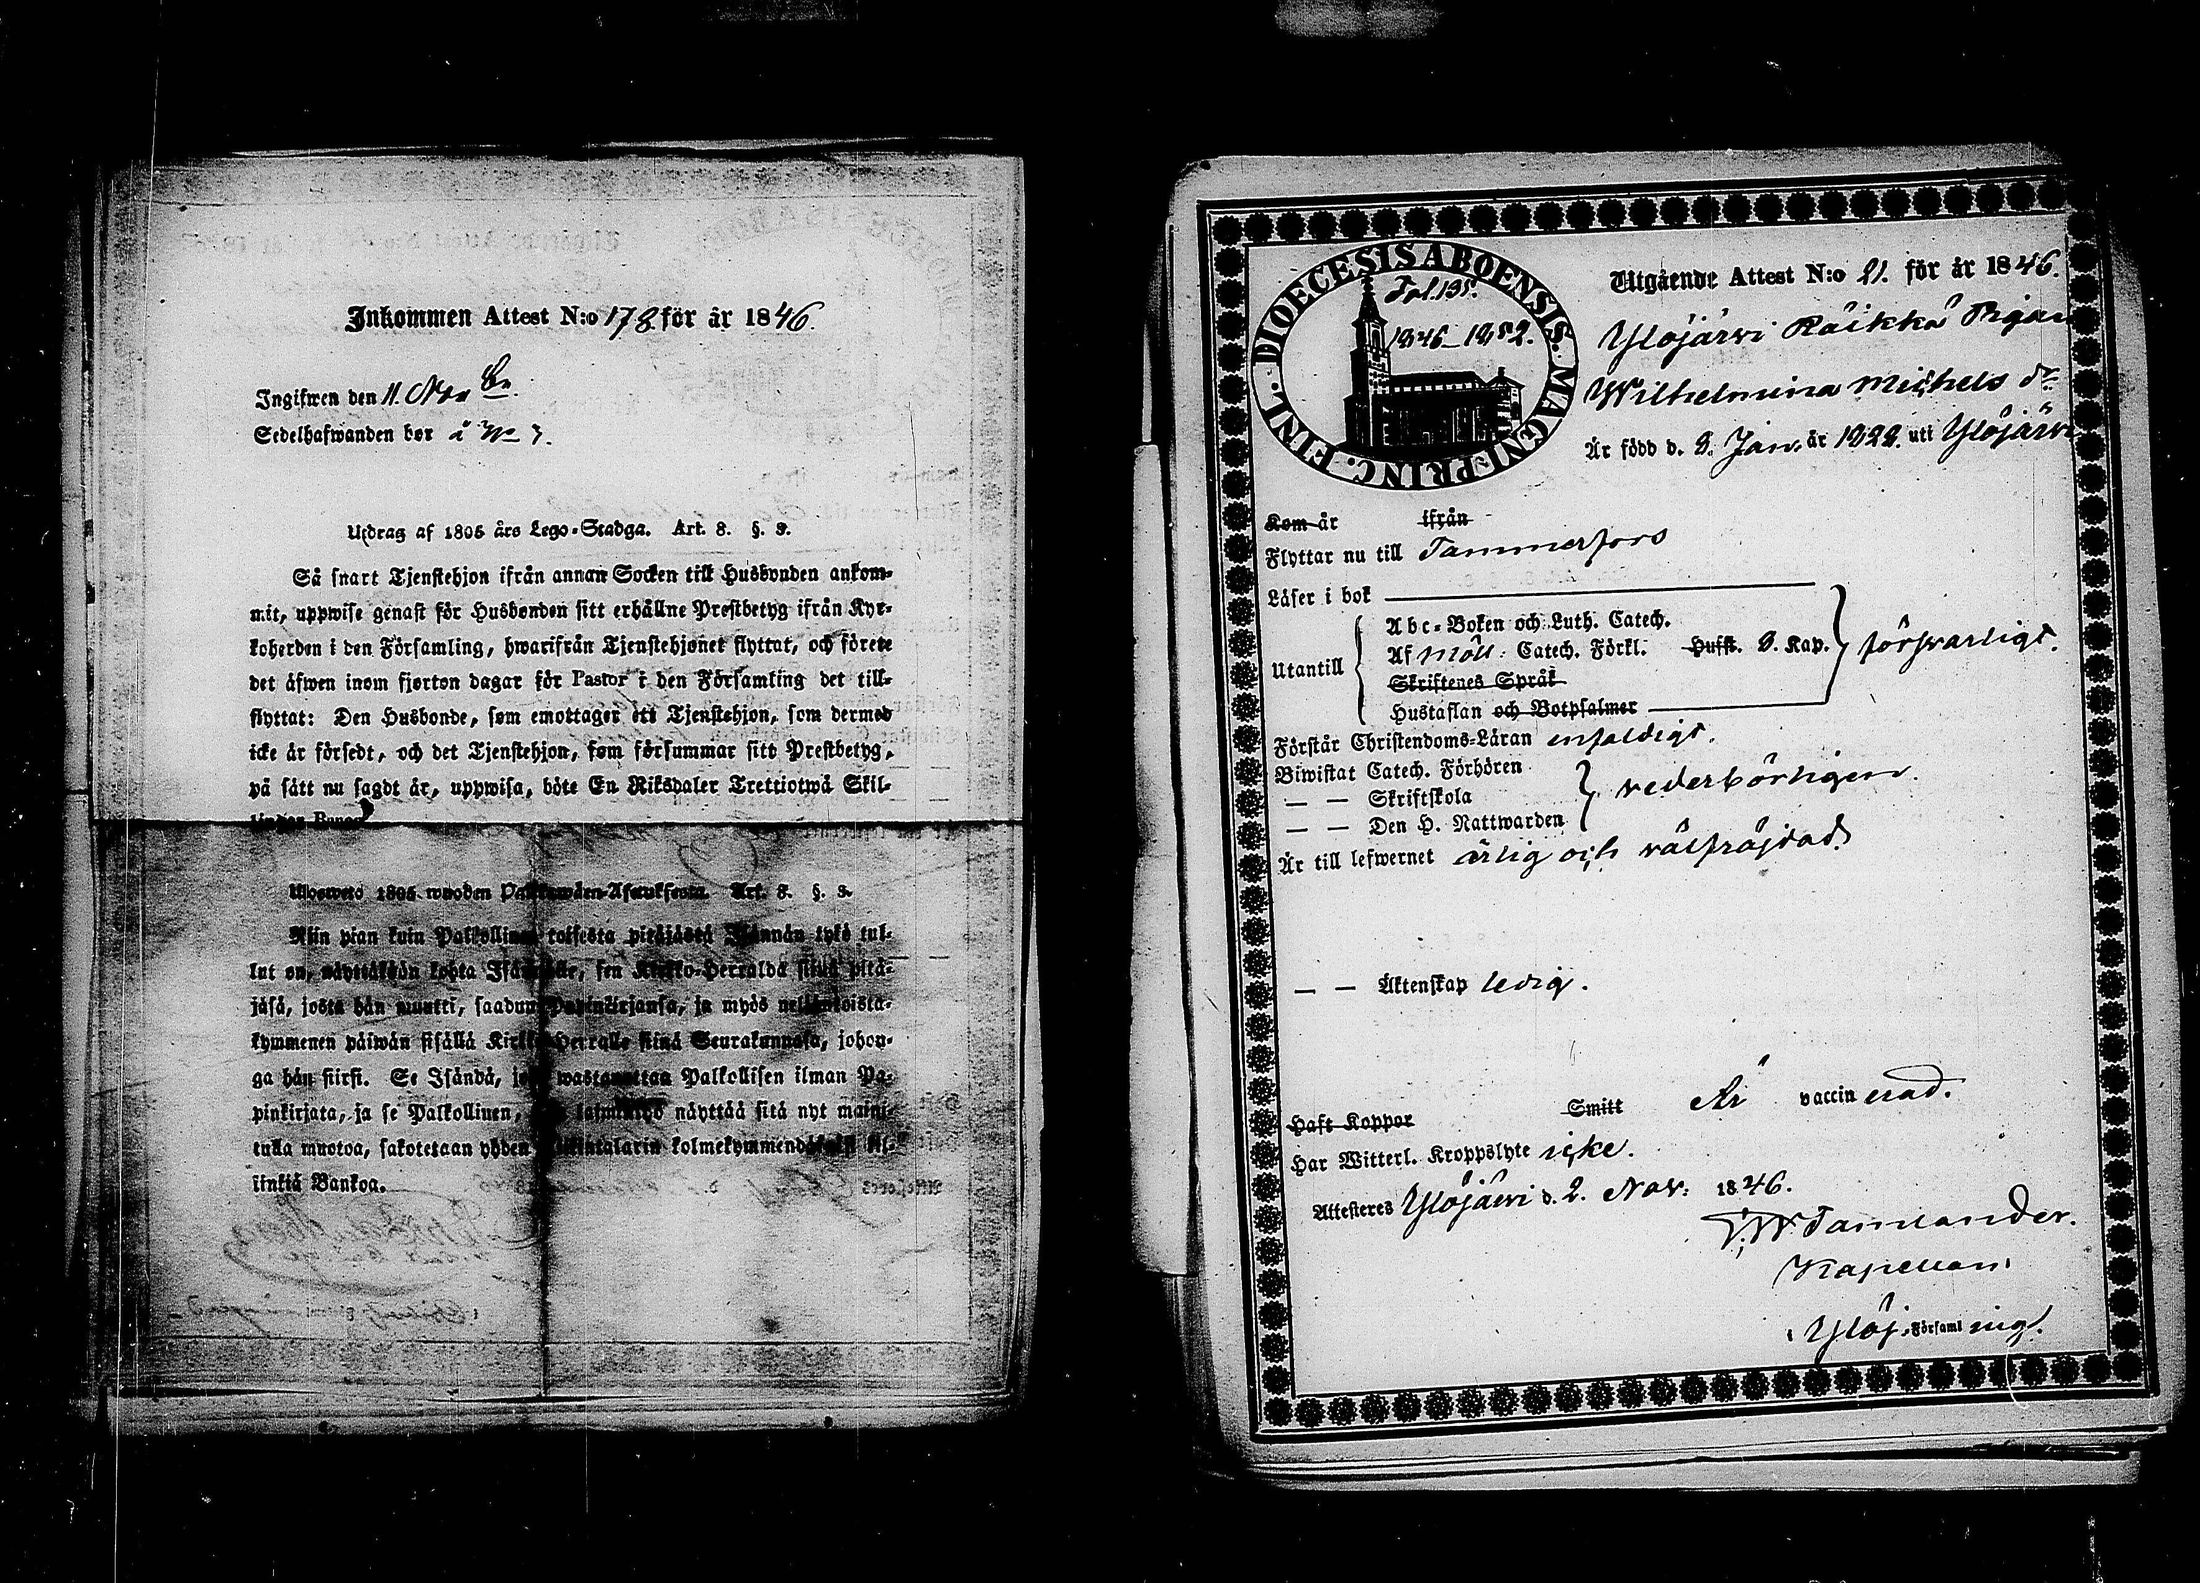 Inkommen Attest N:o 178 för år 1846.
Ingifwen den 11. Nov br.
Sedelhafwanden bor å No 7.
Utdrag af 1805 års Lego-Stadga. Art. 8. §. 3.
Så snart Tjenstehjon ifrån annan Socken till Husbonden ankom-
mit, uppwise genast för Husbonden sitt erhållne Prestbetyg ifrån Kyr-
koherden i den Församling, hwarifrån Tjenstehjonet flyttat, och förete
det äfwen inom fjorton dagar för Pastor i den Församling det till-
flyttat: Den Husbonde, som emottager ett Tjenstehjon, som dermed
icke är försedt, och det Tjenstehjon, som försummar sitt Prestbetyg,
på sätt nu sagdt är, uppwisa, böte En Riksdaler Trettiotwå Skil-
lingar Banco.
Ulosweto 1805 wuoden Palkkawäen-Asetuksesta. Art. 8. §. 3.
Niin pian kuin Palkollinen toisesta pitäjästä Isännän tykö tul-
lut on, näyttäkään kohta Isännälle, sen Kirkko-Herralda siinä pitä-
jäsä, josta hän muutti, saadun Papinkirjansa, ja myös neljäntoista-
kymmenen päiwän sisällä Kirkko-Herralle siinä Seurakunnasa, johon-
ga hän siirsi. Se Isändä, joka wastanottaa Palkollisen ilman Pa-
pinkirjata, ja se Palkollinen, joka laiminlyö näyttää sitä nyt maini-
tulla muotoa, sakotetaan yhden Riikintalarin kolmekymmendäkaksi kil-
linkiä Bankoa.
DIOECESIS ABOENSIS. MAGNI PRINC. FINL.
Fol. 135.
1846-1852.
Utgående Attest N:o 21. för år 1846.
Ylöjärvi Räikkä Pigan
Wilhelmina Michels dr.
Är född d. 9. Jan. år 1822. uti Ylöjärvi
Kom år ifrån
Flyttar nu till Tammerfors
Läser i bok
Utantill
Abc-Boken och Luth. Catech.
Af Möll: Catech. Förkl. Hufst. 9. Kap. försvarligt.
Skriftenes Språk
Hustaflan och Botpsalmer
Förstår Christendoms-Läran enfaldigt.
Biwistat Catech. Förhören
— — Skriftskola vederbörligen.
— — Den H. Nattwarden
Är till lefwernet ärlig och välfräjdad
— — Äktenskap ledig.
Haft Koppor Smitt Är vaccin erad.
Har Witterl. Kroppslyte icke.
Attesteres Ylöjärvi d. 2. Nov: 1846.
Tamlander.
Kapellan
i Ylöj. Församl ing.